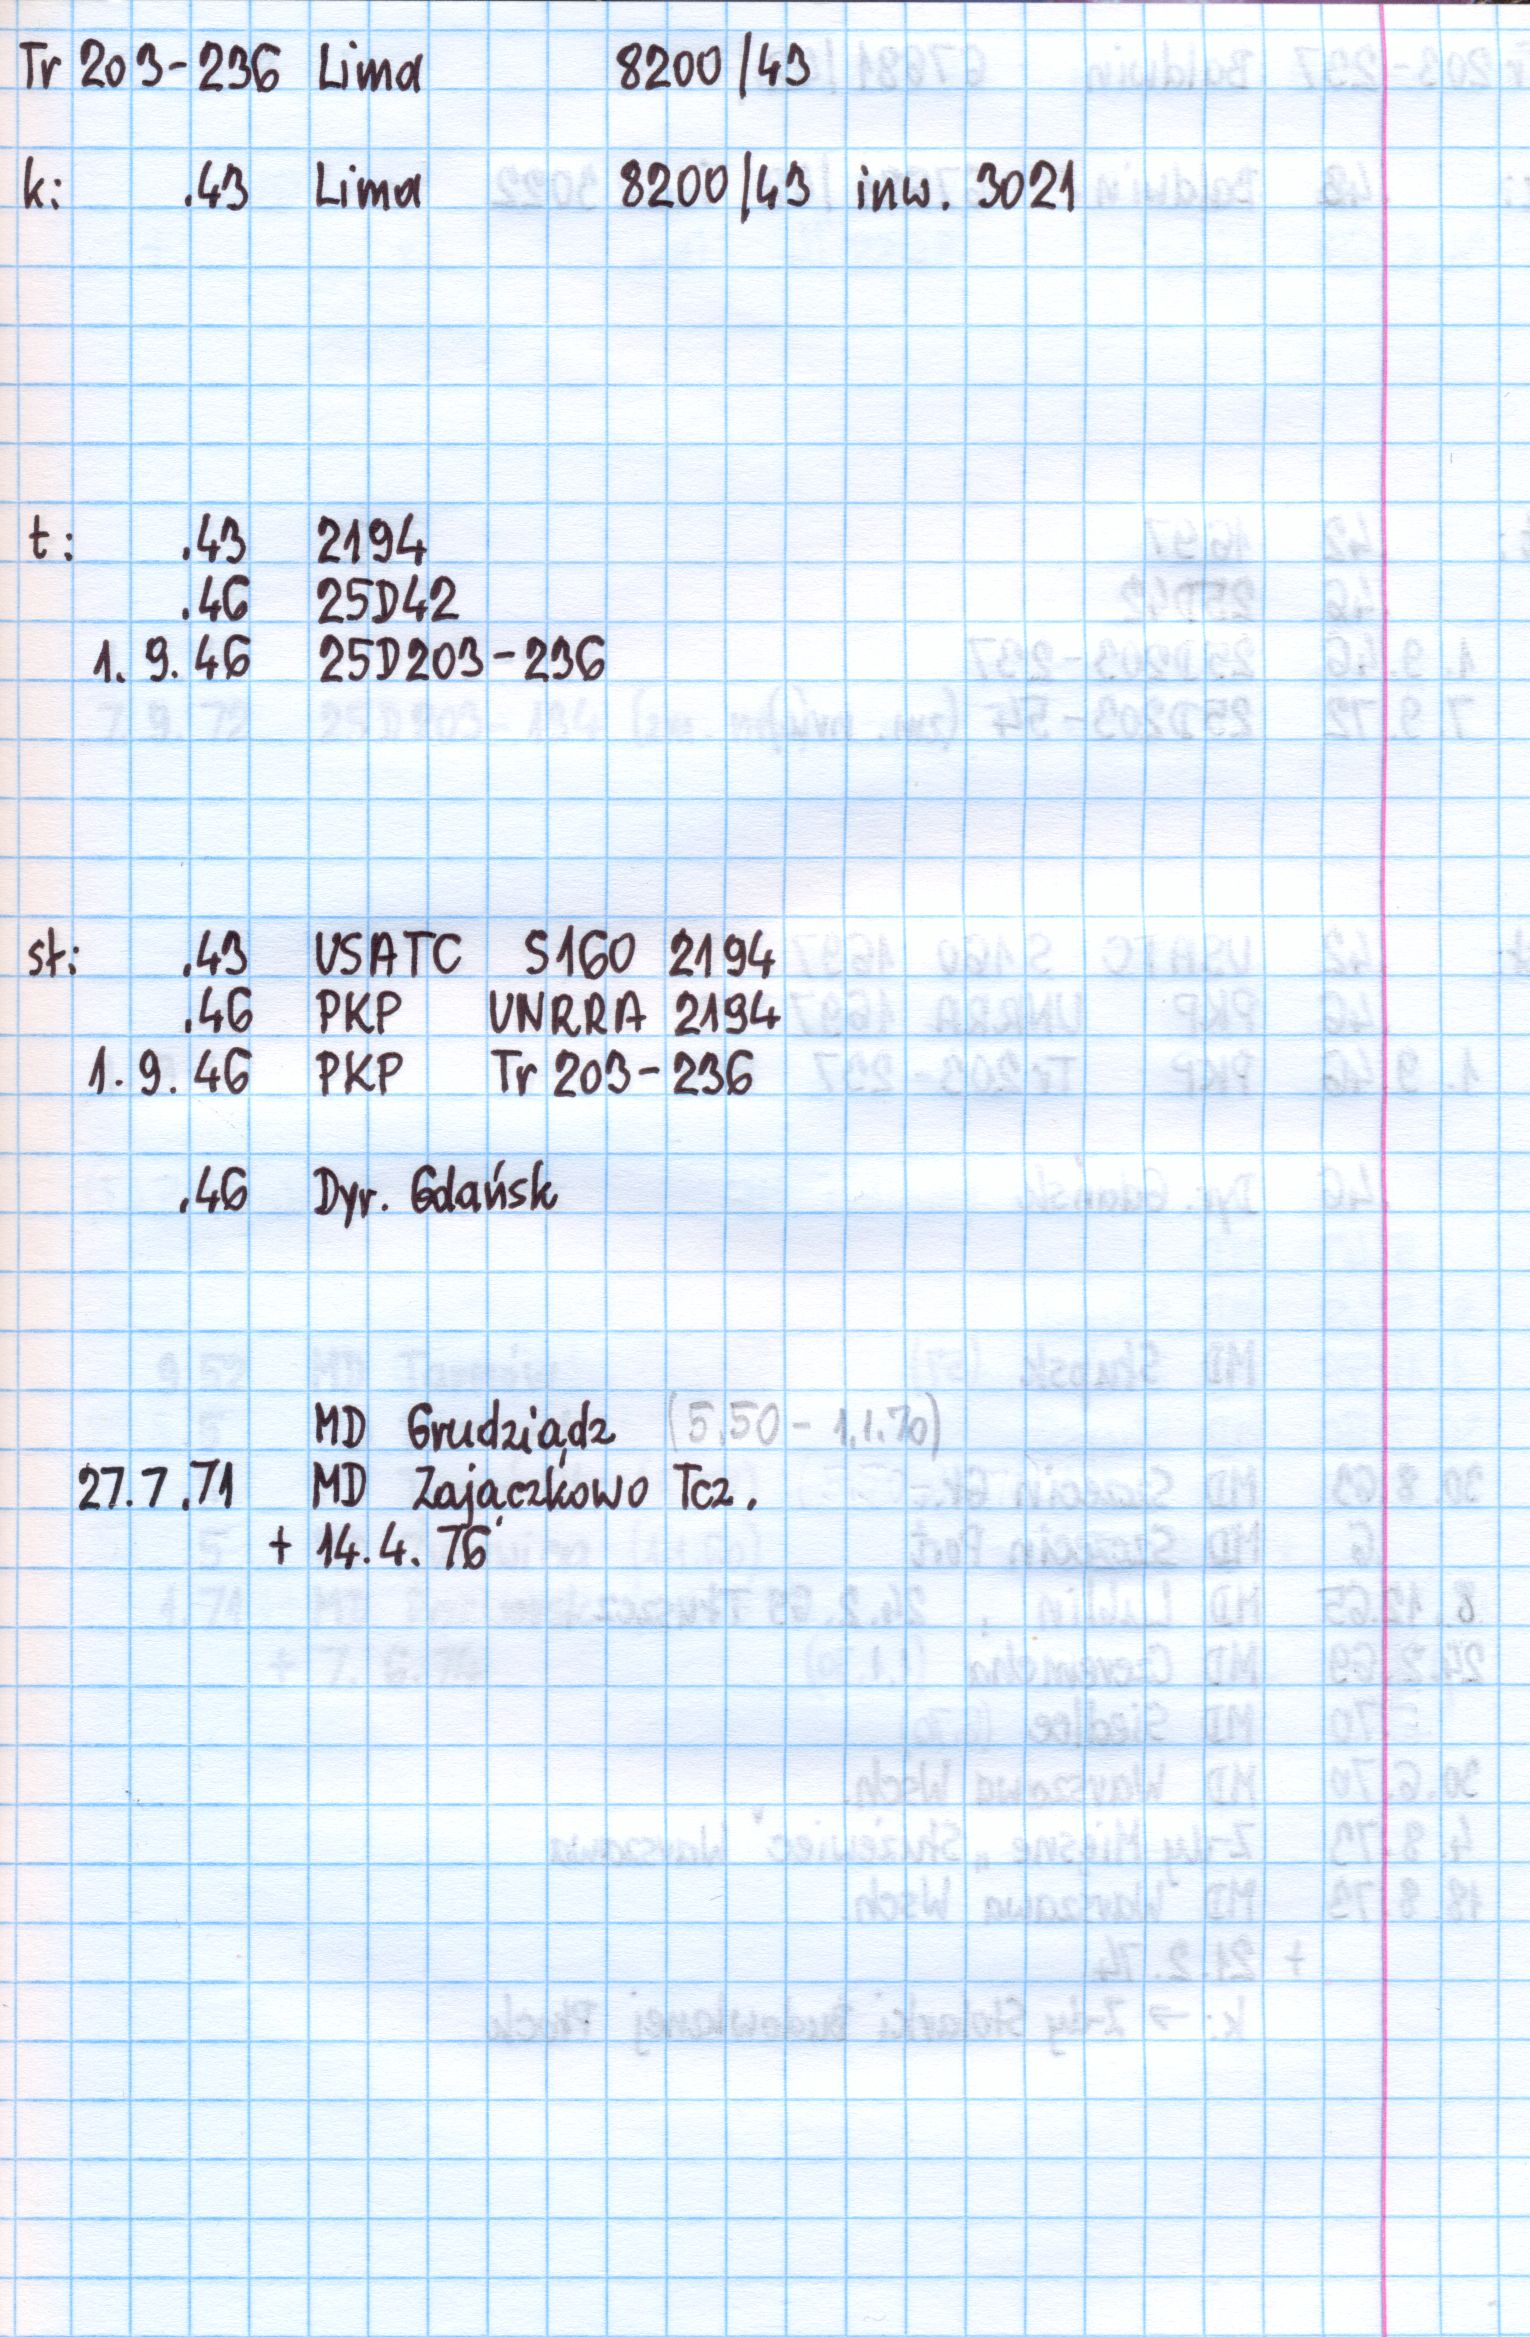 Tr 203-236 Lima 8200/43
k: .43 Lima 8200/43 inw. 3021
t: .43 2194
.46 25D42
1.9.46 25D203-236
st: .43 USATC S160 2194
.46 PKP UNRRA 2194
1.9.46 PKP Tr 203-236
.46 Dyr. Gdańsk
MD Grudziądz (5.50 - 1.1.70)
27.7.71 MD Zajączkowo Tcz.
+ 14.4.76